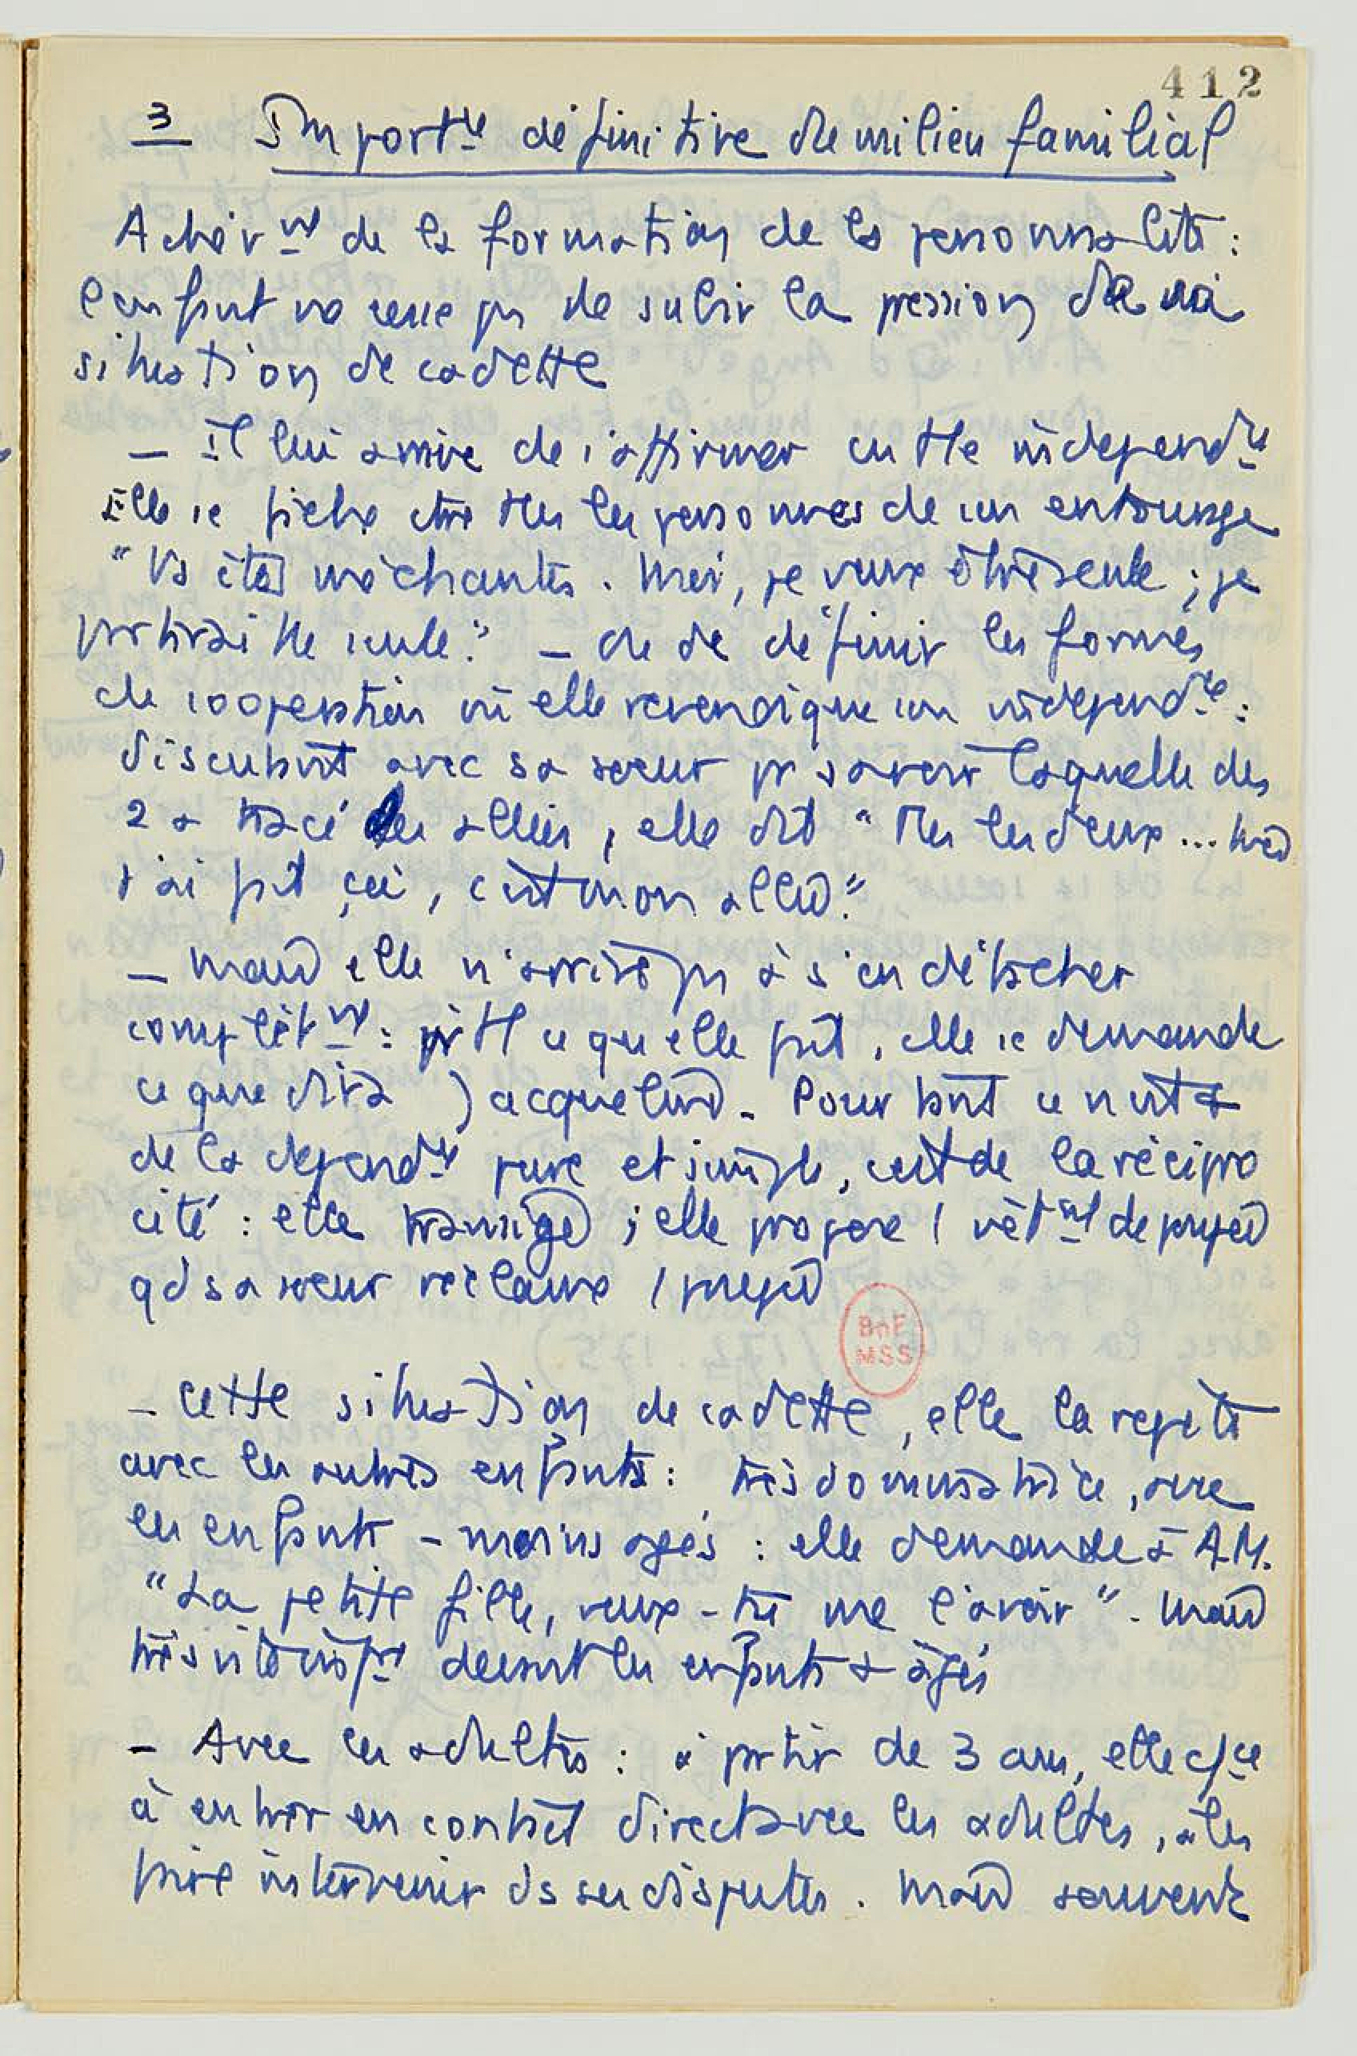 412
3 Import^ce définitive du milieu familial
Achèv^nt de la formation de la personnalité :
l'enfant ne cesse pas de subir la pression de sa
situation de cadette
— Il lui arrive de s'affirmer en tte independ^ce
Elle se fiche ctre ttes les personnes de son entourage
"Vs êtes méchantes. Moi, je veux être seule ; je
partirai tte seule." — de de définir les formes
de coopération où elle revendique son independ^ce :
discutant avec sa soeur pr savoir laquelle des
2 a tracé les allées, elle dit "Ttes les deux... mais
j'ai fait çà, c'est mon allée."
— Mais elle n'arrive pas à s'en détacher
complèt^nt : pr tt ce qu'elle fait, elle se demande
ce que dira Jacqueline. Pour tant ce n'est +
de la depend^ce pure et simple, c'est de la récipro
cité : elle transige ; elle propose 1 vêt^nt de poupée
qd sa soeur réclame 1 poupée
BnF
MSS
— Cette situation de cadette, elle la repète
avec les autres enfants : très dominatrice, avec
les enfants - moins agés : elle demande à A.M.
"La petite fille, veux-tu me l'avoir". Mais
très intimidée devant les enfants + âgés
— Avec les adultes : à partir de 3 ans, elle c/ce
à entrer en contact direct avec les adultes, à les
faire intervenir ds ses disputes. Mais souvent